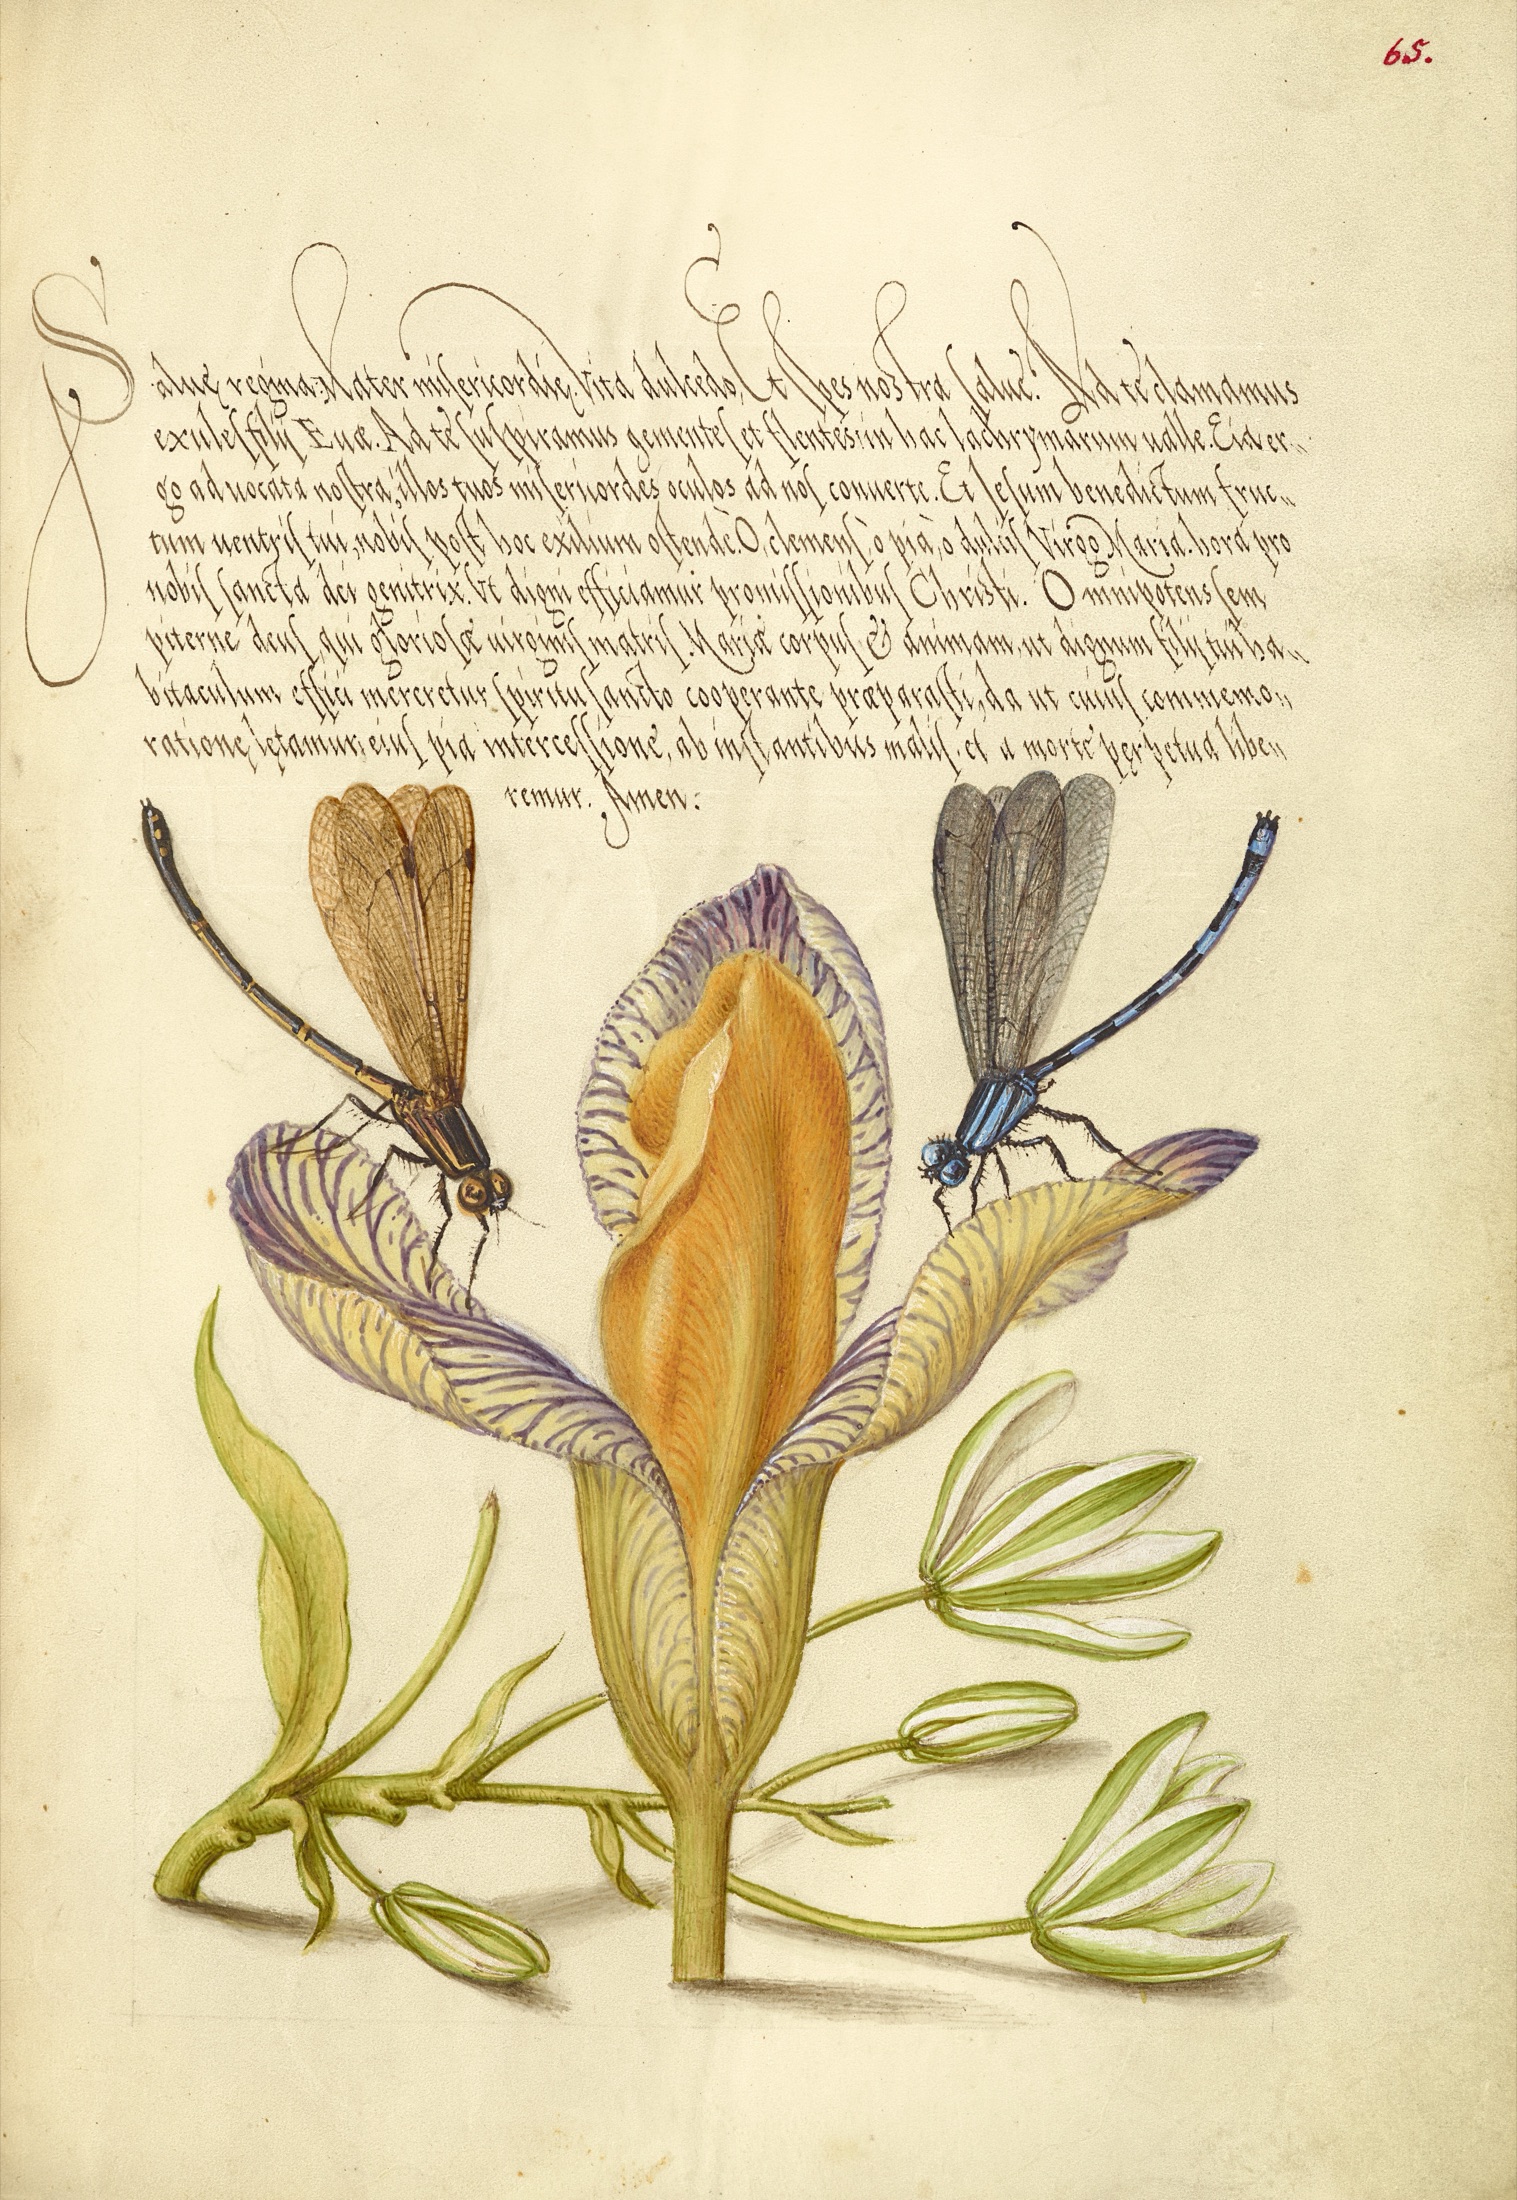 65.
Salue regina. Mater misericordie. Vita dulcedo, Et spes nostra salue. Ad te clamamus
exules filij Euæ. Ad te suspiramus gementes et flentes: in hac lachrymarum ualle. Eia er„
go aduocata nostra, illos tuos misericordes oculos ad nos conuerte. Et Iesum benedictum fruc„
tum uentris tui, nobis post hoc exilium ostende. O, clemens, o pia, o dulcis Virgo Maria. hora pro
nobis sancta dei genitrix. Vt digni efficiamur promissionibus Christi. Omnipotens sem
piterne deus, qui gloriosæ uirginis matris Mariæ corpus & animam, ut dignum filij tui ha„
bitaculum effici mereretur, spiritu sancto cooperante præparasti, da ut cuius commemo„
ratione letamur: eius pia intercessione, ab instantibus malis. et a morte perpetua libe„
remur. Amen: